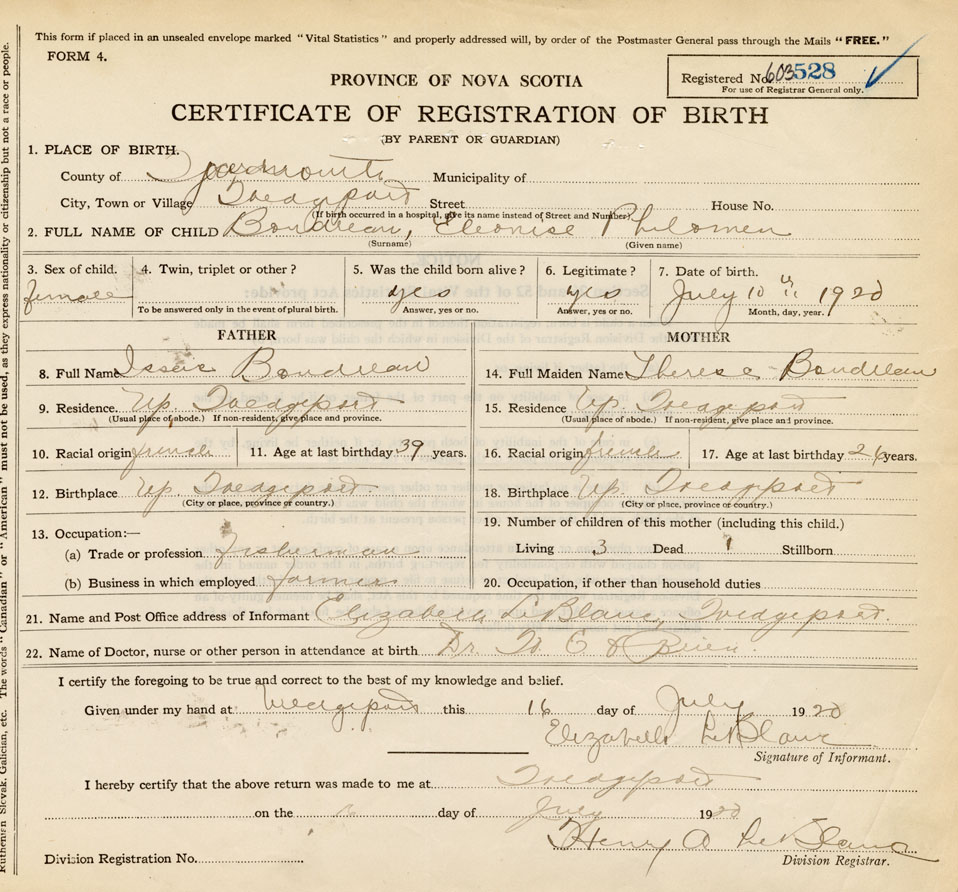 This form if placed in an unsealed envelope marked "Vital Statistics" and properly addressed will, by order of the Postmaster General pass through the Mails "FREE."
FORM 4.
PROVINCE OF NOVA SCOTIA
Registered No. 603528
For use of Registrar General only.
CERTIFICATE OF REGISTRATION OF BIRTH
(BY PARENT OR GUARDIAN)
1. PLACE OF BIRTH.
County of Yarmouth Municipality of
City, Town or Village Wedgeport Street House No.
(If birth occurred in a hospital, give its name instead of Street and Number)
2. FULL NAME OF CHILD Boudreau, Eleonise Philomen
(Surname) (Given name)
3. Sex of child. 4. Twin, triplet or other? 5. Was the child born alive? 6. Legitimate? 7. Date of birth.
female yes yes July 10th 1920
To be answered only in the event of plural birth. Answer, yes or no. Answer, yes or no. Month, day, year.
FATHER MOTHER
8. Full Name Isaac Boudreau 14. Full Maiden Name Therese Boudreau
9. Residence Up. Wedgeport 15. Residence Up. Wedgeport
(Usual place of abode.) If non-resident, give place and province. (Usual place of abode.) If non-resident, give place and province.
10. Racial origin french 11. Age at last birthday 39 years. 16. Racial origin french 17. Age at last birthday 26 years.
12. Birthplace Up. Wedgeport 18. Birthplace Up. Wedgeport
(City or place, province or country.) (City or place, province or country.)
13. Occupation:— 19. Number of children of this mother (including this child.)
(a) Trade or profession fisherman Living 3 Dead 1 Stillborn
(b) Business in which employed farmer 20. Occupation, if other than household duties
21. Name and Post Office address of Informant Elizabeth LeBlanc, Wedgeport.
22. Name of Doctor, nurse or other person in attendance at birth Dr. O'Brien.
I certify the foregoing to be true and correct to the best of my knowledge and belief.
Given under my hand at Wedgeport this 16 day of July 1920
Elizabeth LeBlanc
Signature of Informant.
I hereby certify that the above return was made to me at Wedgeport
on the day of July 1920
Henry A LeBlanc
Division Registration No. Division Registrar.
Ruthenian Slovak, Galician, etc. The words "Canadian" or "American" must not be used, as they express nationality or citizenship but not a race or people.